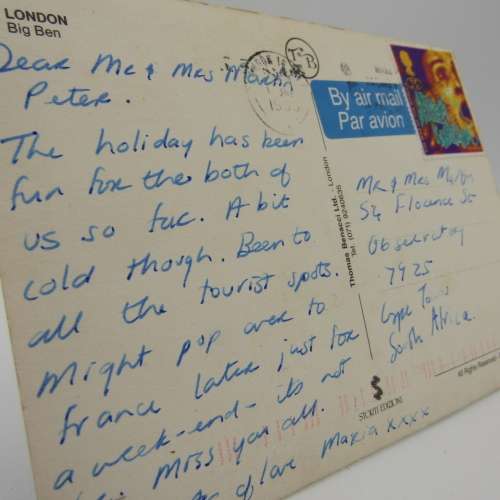 LONDON
Big Ben
Dear Mr & Mrs Martin
Peter.
The holiday has been
fun for the both of
us so far. A bit
cold though. Been to
all the tourist spots.
Might pop over to
France later just for
a week-end - its not
miss you all.
of love Maria xxxx
By air mail
Par avion
Thomas Benacci Ltd. - London
Tel. (071) 9240635
Mr & Mrs Martin
Florence St
Observatory
7925
Cape Town
South Africa.
All Rights Reserved